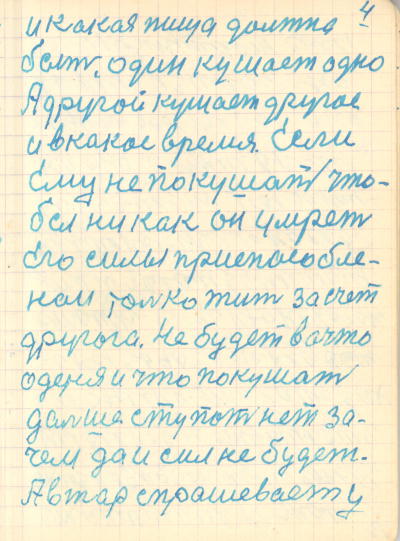 4
и какая пища должна
быт, один кушает одно
А другой кушает другое
и в какое время. Если
Ему не покушат что-
бел никак он умрет
Его силы приспособле-
нои толко жит за счет
другога. Не будет вочто
оденя и что покушат
далше ступот нет за-
чем да и сил не будет.
Автар спрашевает у